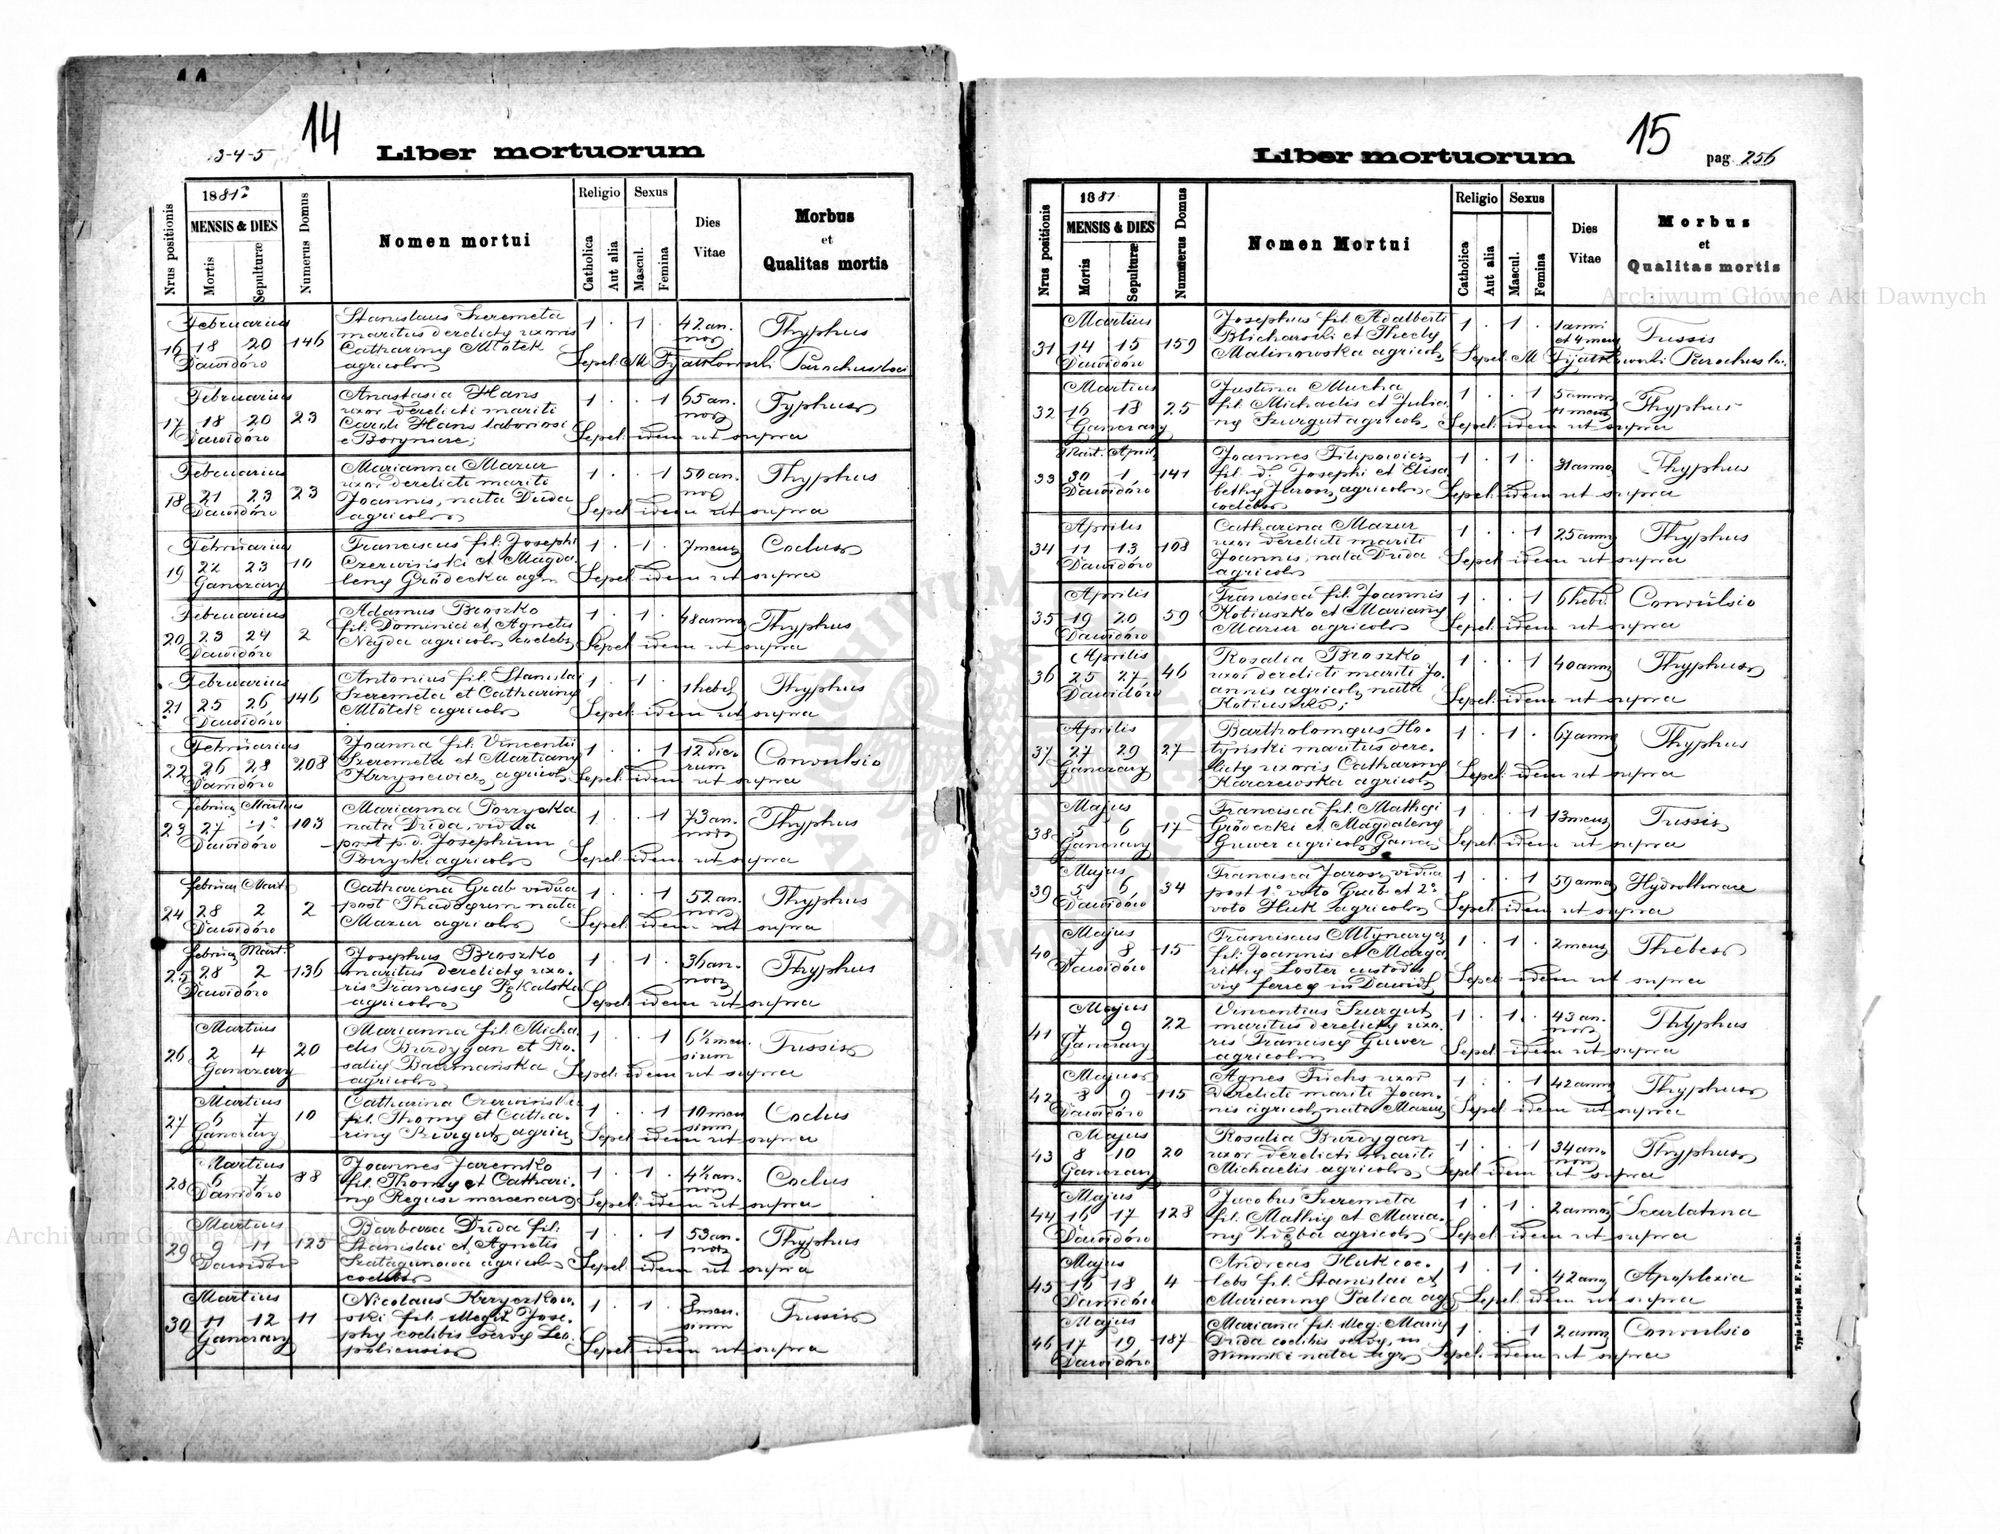 14
3-4-5
Liber mortuorum
1881
Nrus positionis
MENSIS & DIES
Mortis
Sepulturæ
Numerus Domus
Nomen mortui
Religio
Catholica
Aut alia
Sexus
Mascul.
Femina
Dies
Vitae
Morbus
et
Qualitas mortis
Februarius Stanislaus Szeremeta 1 . 1 . 42 an. Thyphus
16 18 20 146 maritus derelicty uxoris
Dawidów Cathariny Młotek Sepel. M Fijałkowski Parochus loci
agricola
Februarius Anastasia Hans 1 . . 1 65 an. Typhus
17 18 20 23 uxor derelicti mariti
Dawidów Caroli Hans laboriosi Sepel. idem ut supra
e Borynicze;
Februarius Marianna Mazur 1 . . 1 50 an. Thyphus
18 21 23 23 uxor derelicti mariti
Dawidów Joannis, nata Duda Sepel. idem ut supra
agricola
Februarius Franciscus fil. Josephi 1 . 1 . 7 mens
19 22 23 10 Czerwiński et Magda
Ganczary leny Gródecka agr. Sepel. idem ut supra
Februarius Adamus Broszko 1 . 1 . 48 annor Thyphus
20 23 24 2 fil. Dominici et Agnetis
Dawidów agricola coelebs Sepel. idem ut supra
Februarius Antonius fil. Stanislai 1 . 1 . 1 hebd Thyphus
21 25 26 146 Szeremeta et Cathariny
Dawidów Młotek agricola Sepel. idem ut supra
Februarius Joanna fil. Vincentii 1 . . 1 12 die- Convulsio
22 26 28 208 Szeremeta et Martiany rum
Dawidów Krzysiewicz agricol Sepel. idem ut supra
Februar Martius Marianna 1 . . 1 73 an- Thyphus
23 27 1 103 nata Duda, vidua
Dawidów post p. d. Josephum
agricola Sepel. idem ut supra
Februar Mart Catharina Grab vidua 1 . . 1 52 an- Thyphus
24 28 2 2 post nata
Dawidów Mazur agricola Sepel. idem ut supra
Februar Mart. Josephus Broszko 1 . 1 . 36 an- Thyphus
25 28 2 136 maritus derelicty uxo-
Dawidów ris Franciscy Pękalska
agricola Sepel. idem ut supra
Martius Marianna fil. Micha 1 . . 1 6½ men- Tussis
26 2 4 20 elis Burdygan et Ro- sium
Ganczary saliy Baumańska Sepel. idem ut supra
agricola
Martius Catharina Czerwińska 1 . . 1 10 men
27 6 7 10 fil. Thomy et Catha- sium
Ganczary riny Szurgut agric Sepel. idem ut supra
Martius Joannes Jaremko 1 . 1 . 4½ an-
28 6 7 88 fil. Thomy et Cathari-
Dawidów ny Sepel. idem ut supra
Martius Barbara Duda fil. 1 . . 1 53 an- Thyphus
29 9 11 125 Stanislai et Agnetis
Dawidów agricola Sepel. idem ut supra
coelebs
Martius Nicolaus Krzyczkow- 1 . 1 . men- Tussis
30 11 12 11 ski fil. illegit Jose- sium
Ganczary phy coelibis servy Leo
poliensis Sepel. idem ut supra
15
Liber mortuorum
pag 256
1881
Nrus positionis
MENSIS & DIES
Mortis
Sepulturæ
Numerus Domus
Nomen Mortui
Religio
Catholica
Aut alia
Sexus
Mascul.
Femina
Dies
Vitae
Morbus
et
Qualitas mortis
Martius Josephus fil. Adalberti 1 . 1 . 1 anni Tussis
31 14 15 159 Blicharski et Thecly et 4 mens
Dawidów Malinowska agricol Sepel. M Fijałkowski Parochus
Martius Justina Mucha 1 . . 1 5 annor Thyphus
32 16 18 25 fil. Michaelis et Julia
Ganczary ny Szurgut agricol Sepel. idem ut supra
Mart. April. Joannes Filipowicz 1 . 1 . 31 annor Thyphus
33 30 1 141 fil. Josephi et Elisa
Dawidów bethy Jarosz agricola Sepel. idem ut supra
coelebs
Aprilis Catharina Mazur 1 . . 1 25 annor Thyphus
34 11 13 108 uxor derelicti mariti
Dawidów Joannis, nata Duda Sepel. idem ut supra
agricola
Aprilis Francisca fil. Joannis 1 . . 1 6 hebd. Convulsio
35 19 20 59 Kotiuszko et Marianny
Dawidów Mazur agricola Sepel. idem ut supra
Aprilis Rosalia Broszko 1 . . 1 40 annor Thyphus
36 25 27 46 uxor derelicti mariti Jo-
Dawidów annis agricol, nata Sepel. idem ut supra
Kotiuszko;
Aprilis Bartholomeus Ho- 1 . 1 . 67 annor Thyphus
37 27 29 27 tyński maritus dere-
Ganczary licty uxoris Catharing Sepel. idem ut supra
Karczewska agricol
Majus Francisca fil. Mathei 1 . . 1 13 mens Tussis
38 5 6 17 Gródecki et Magdaleny
Ganczary Guwer agricol Sepel. idem ut supra
Majus Francisca Jarosz vidua 1 . . 1 59 annor Hydrothorace
39 5 6 34 post 1° voto Grab et 2°
Dawidów voto Huk agricola Sepel. idem ut supra
Majus Franciscus Młynarycz 1 . 1 . 2 mens
40 7 8 15 fil. Joannis et Marga
Dawidów rithy Loster custodis
viy ferrey in Dawid Sepel. idem ut supra
Majus Vincentius Szurgut 1 . 1 . 43 an- Thyphus
41 7 9 22 maritus derelicty uxo-
Ganczary ris Franciscy Guwer
agricola Sepel. idem ut supra
Majus Agnes Fuchs uxor 1 . . 1 42 annor Thyphus
42 8 9 115 derelicti mariti Joan-
Dawidów nis agricol, nata Mazur Sepel. idem ut supra
Majus Rosalia Burdygan 1 . . 1 34 an- Thyphus
43 8 10 20 uxor derelicti mariti
Ganczary Michaelis agricola Sepel. idem ut supra
Majus Jacobus Szeremeta 1 . 1 . 2 annor Scarlatina
44 16 17 128 fil. Mathiy et Maria-
Dawidów ny Zięba agricola Sepel. idem ut supra
Majus Andreas Huk coe- 1 . 1 . 42 ann Apoplexia
45 16 18 4 lebs fil. Stanislai et
Dawidów Marianny Palica ag Sepel. idem ut supra
Majus Mariana fil. illeg. Mariy 1 . . 1 2 annor Convulsio
46 17 19 187 Duda coelibis servy, in
Dawidów nata agr Sepel. idem ut supra
Typis Leiopol M. F. Poremba.
Archiwum Główne Akt Dawnych
Archiwum Główne Akt Dawnych
ARCHIWUM GŁÓWNE AKT DAWNYCH